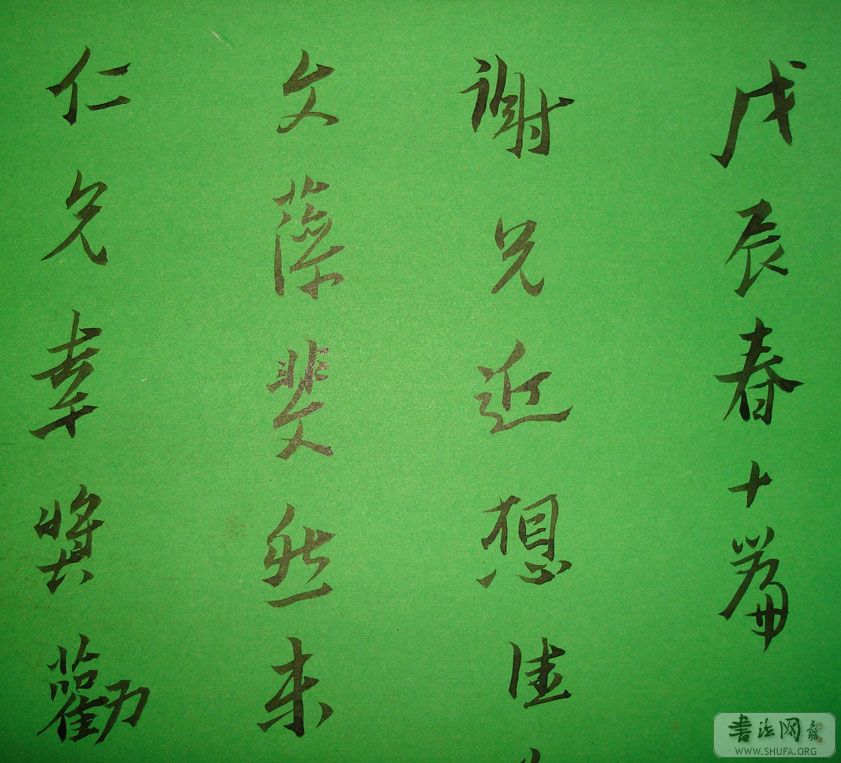 戊辰春十篇
谢兄近想佳
文藻斐然来
仁兄幸奖劝
书法网
WWW.SHUFA.ORG